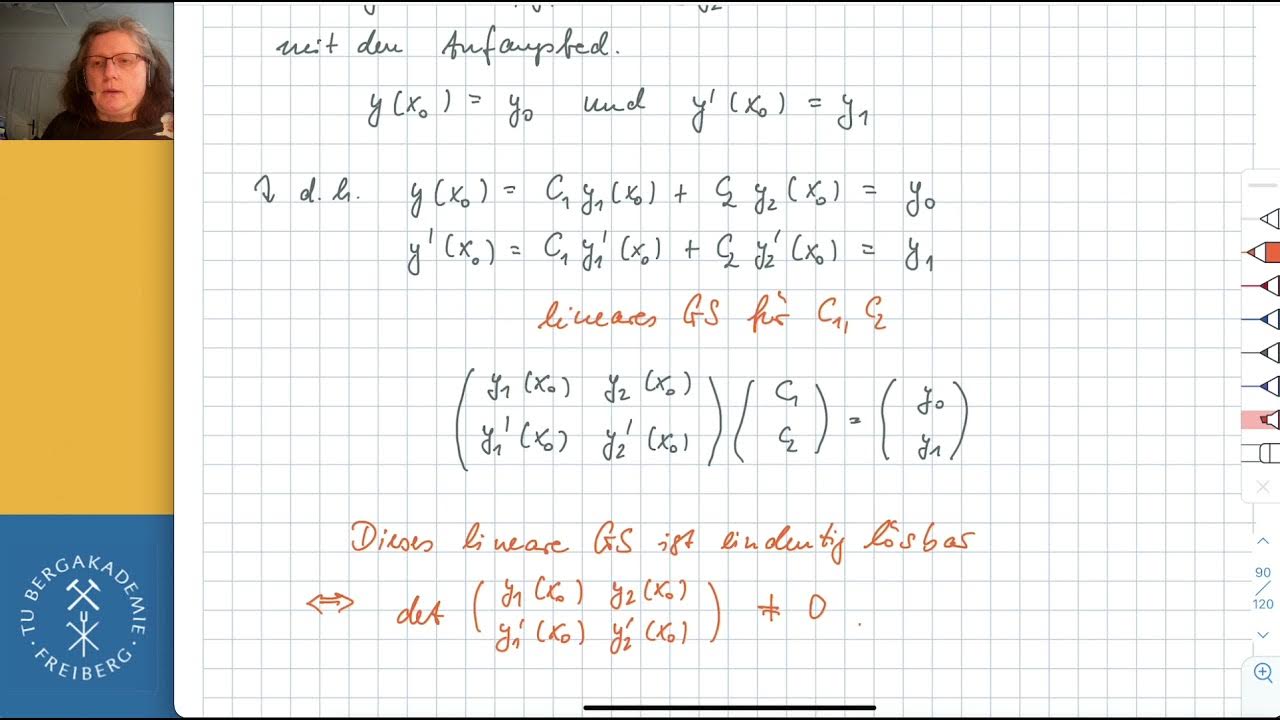 mit den Anfangsbed.
y(x₀) = y₀ und y'(x₀) = y₁
d.h. y(x₀) = C₁ y₁(x₀) + C₂ y₂(x₀) = y₀
y'(x₀) = C₁ y₁'(x₀) + C₂ y₂'(x₀) = y₁
lineares GS für C₁, C₂
( y₁(x₀) y₂(x₀) ) ( C₁ ) = ( y₀ )
( y₁'(x₀) y₂'(x₀) ) ( C₂ ) ( y₁ )
Dieses lineare GS ist eindeutig lösbar
⇔ det ( y₁(x₀) y₂(x₀) ) ≠ 0.
( y₁'(x₀) y₂'(x₀) )
90
120
TU BERGAKADEMIE
· FREIBERG ·